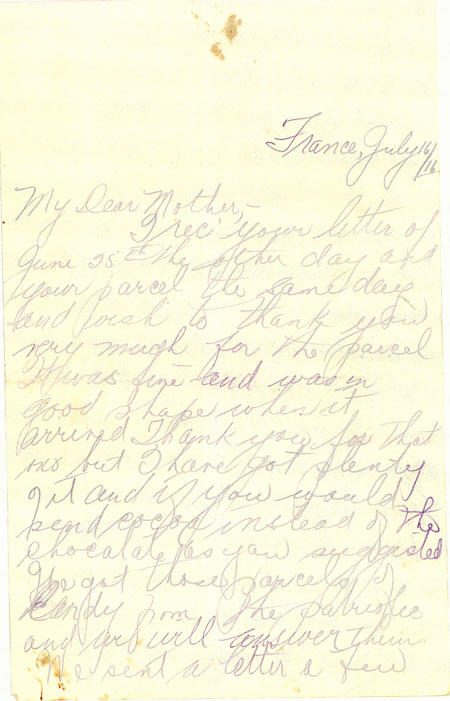 France, July 16/16.
My Dear Mother,-
I rec' your letter of
June 25th the other day and
your parcel the same day
and wish to thank you
very much for the parcel
It was fine and was in
good shape when it
arrived Thank you for that
but I have got plenty
of it and if you would
send cocoa instead of the
chocolate as you suggested
I've got those parcels of
Kandy from the patriotic
and we will answer them
We sent a letter a few